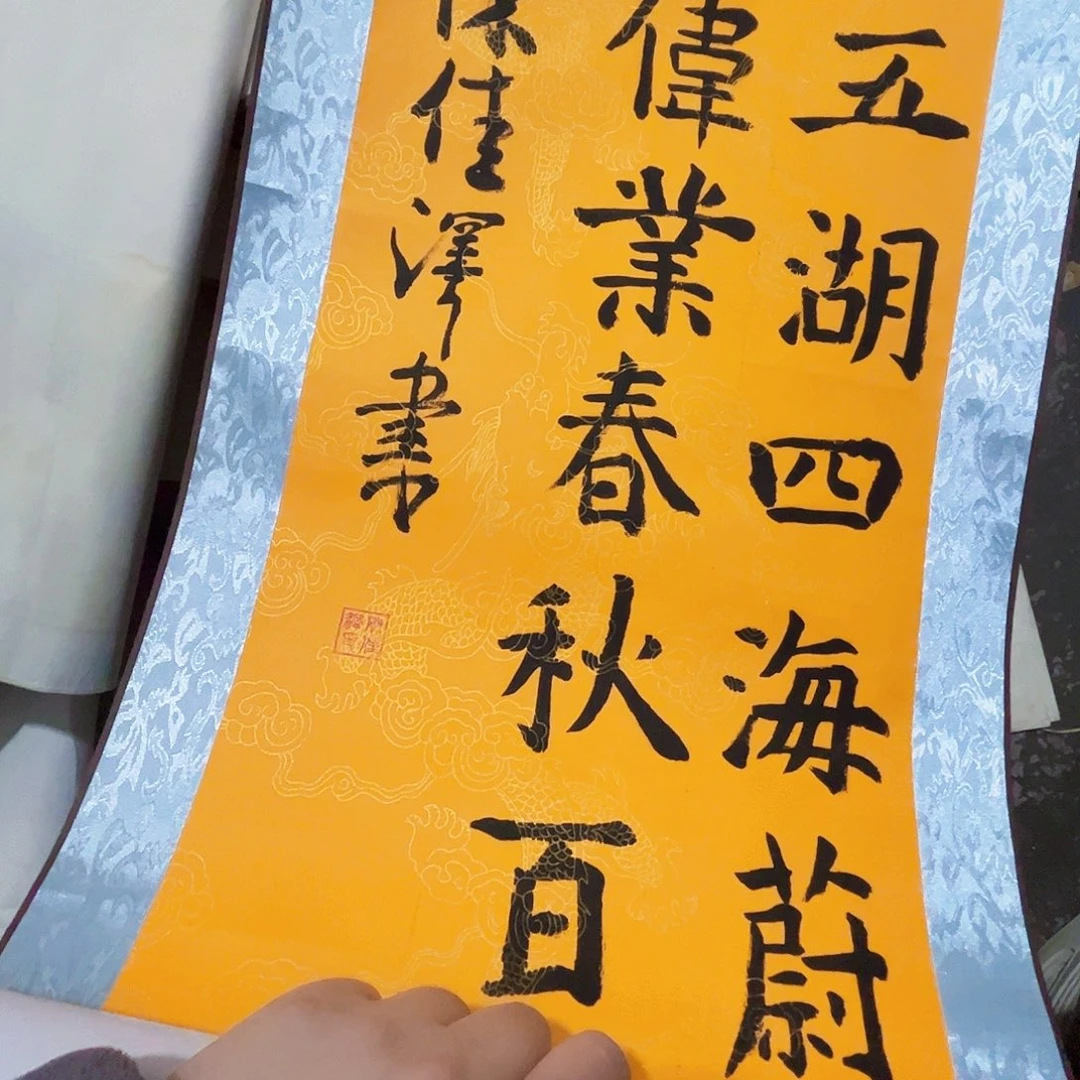 五湖四海蔚
偉業春秋百
佳澤書